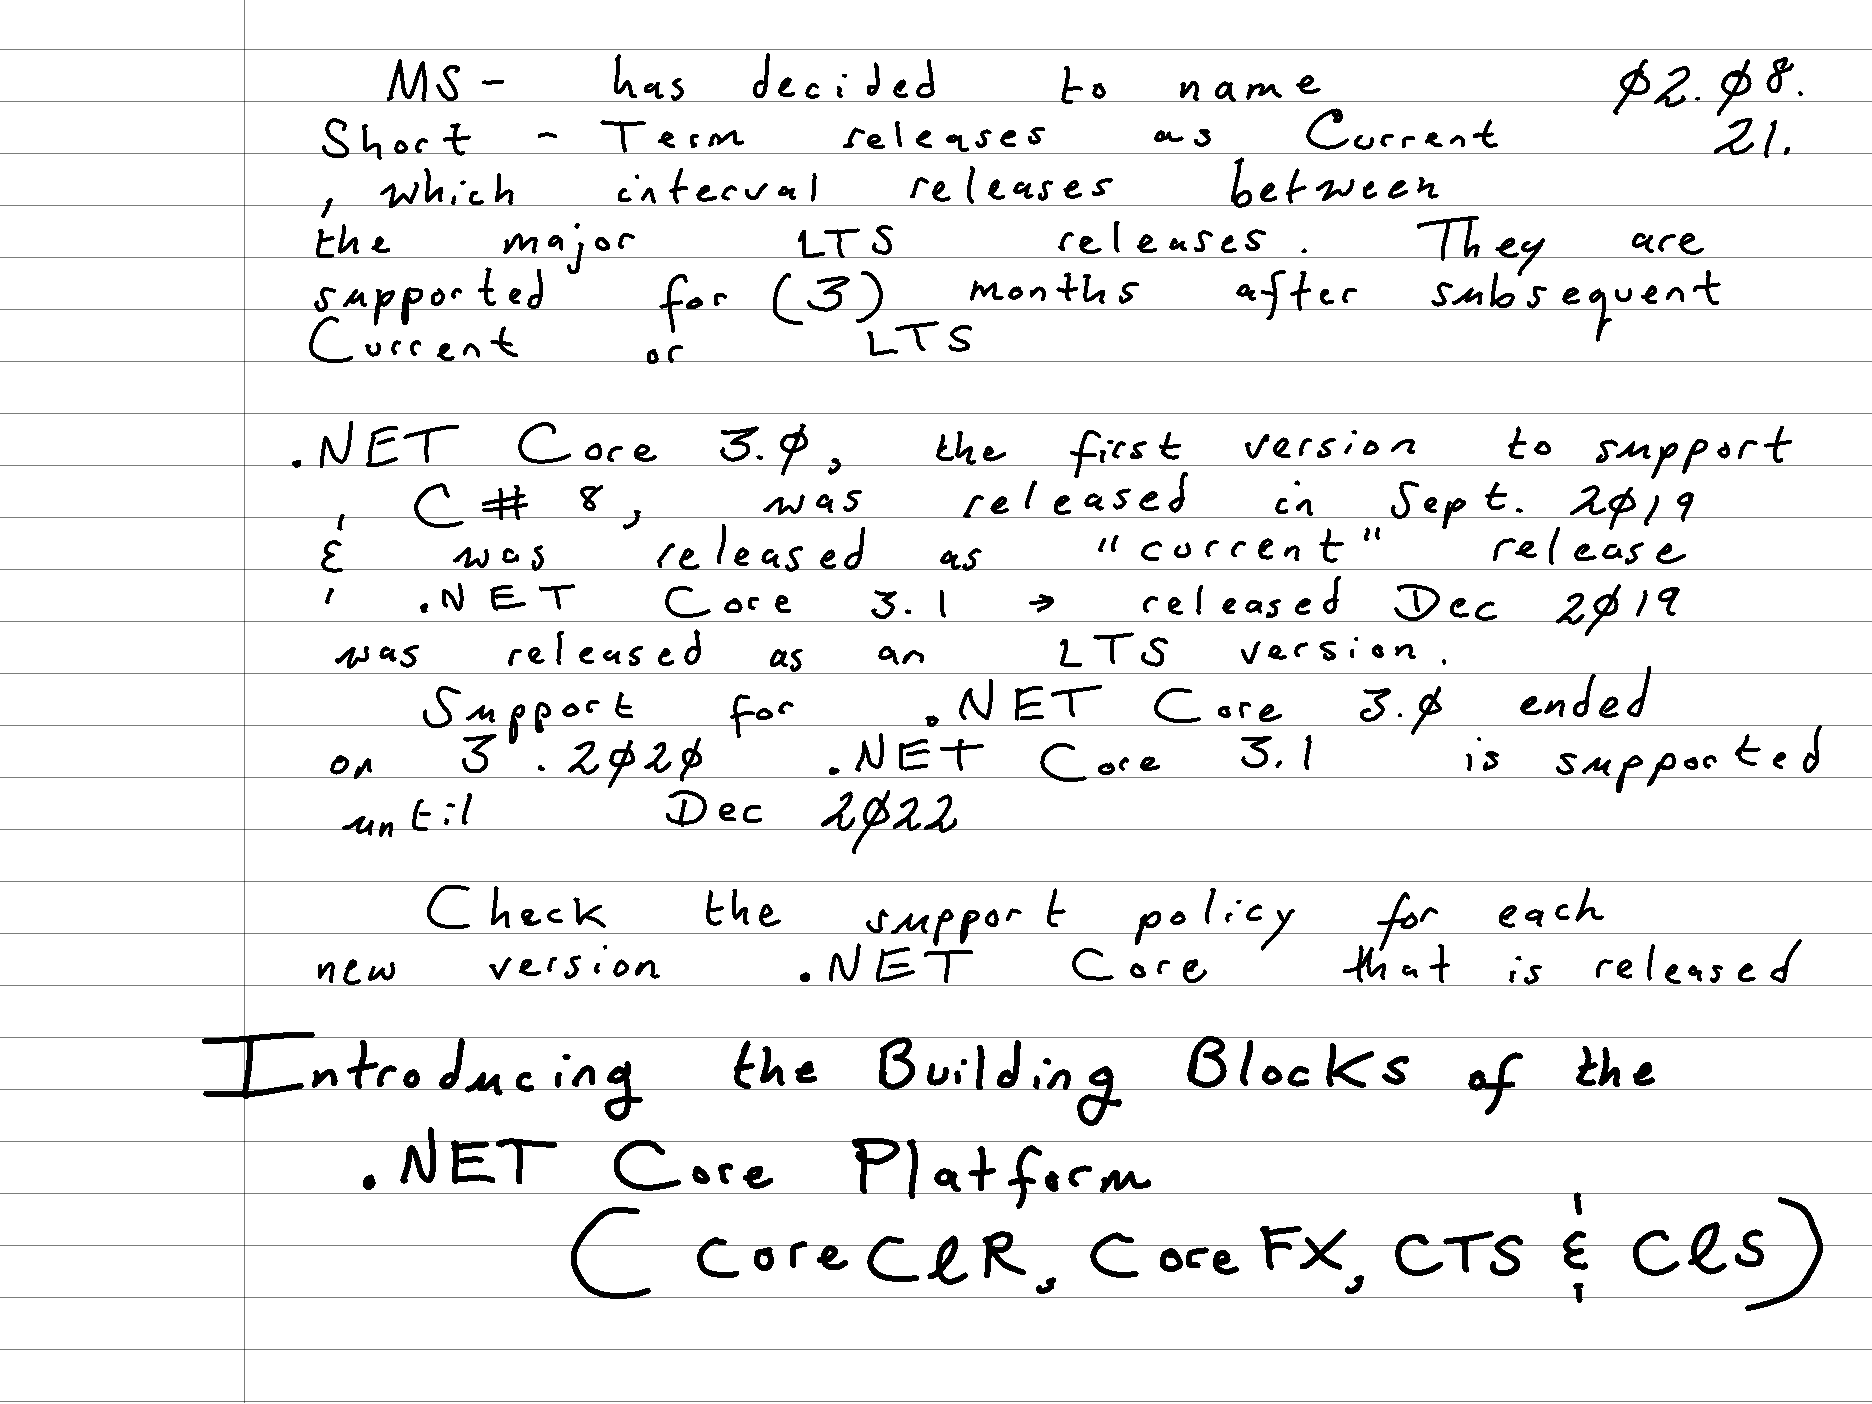 MS - has decided to name ø2.ø8.
Short - Term releases as Current 21.
, which interval releases between
the major LTS releases. They are
supported for (3) months after subsequent
Current or LTS
.NET Core 3.ø, the first version to support
C# 8, was released in Sept. 2ø19
& was released as "current" release
.NET Core 3.1 → released Dec 2ø19
was released as an LTS version.
Support for .NET Core 3.ø ended
on 3.2ø2ø .NET Core 3.1 is supported
until Dec 2ø22
Check the support policy for each
new version .NET Core that is released
Introducing the Building Blocks of the
.NET Core Platform
(CoreClR, CoreFX, CTS & ClS)